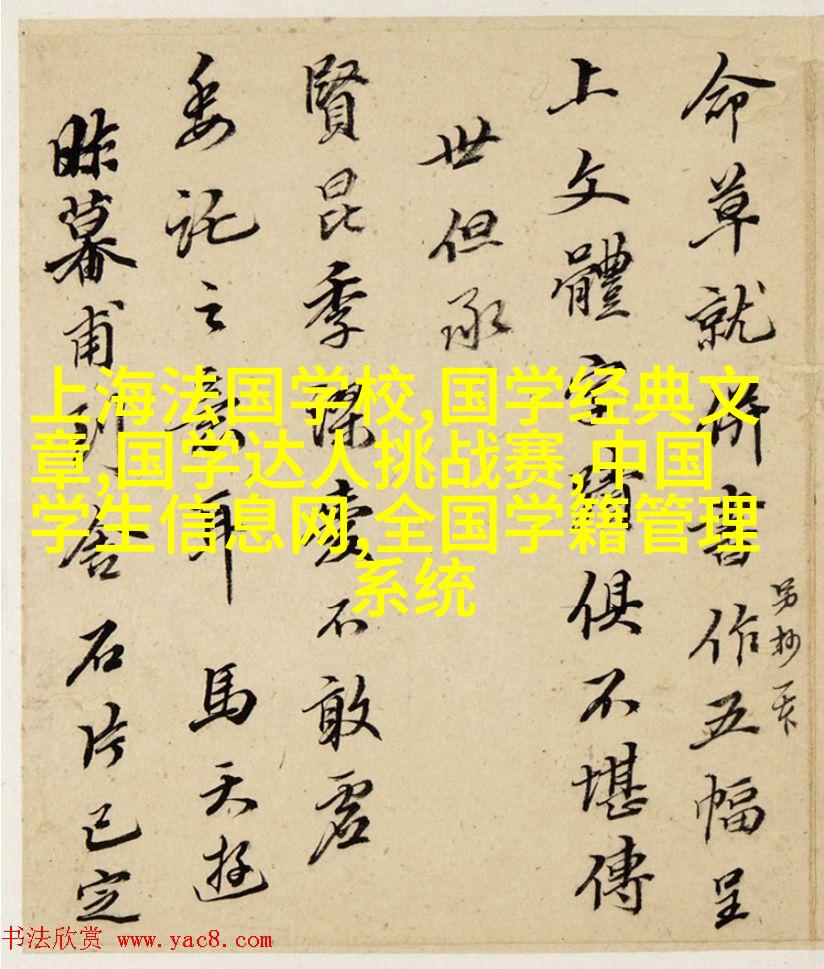 命草就併書作五幅呈
另抄一下
上文體字蹟俱不堪傳
世但承
賢昆季謬愛不敢虛
委託之意耳馬天游
暾暮甫到舍石片已定
上海法国学校,国学经典文
章,国学达人挑战赛,中国
学生信息网,全国学籍管理
系统
书法欣赏 www.yac8.com